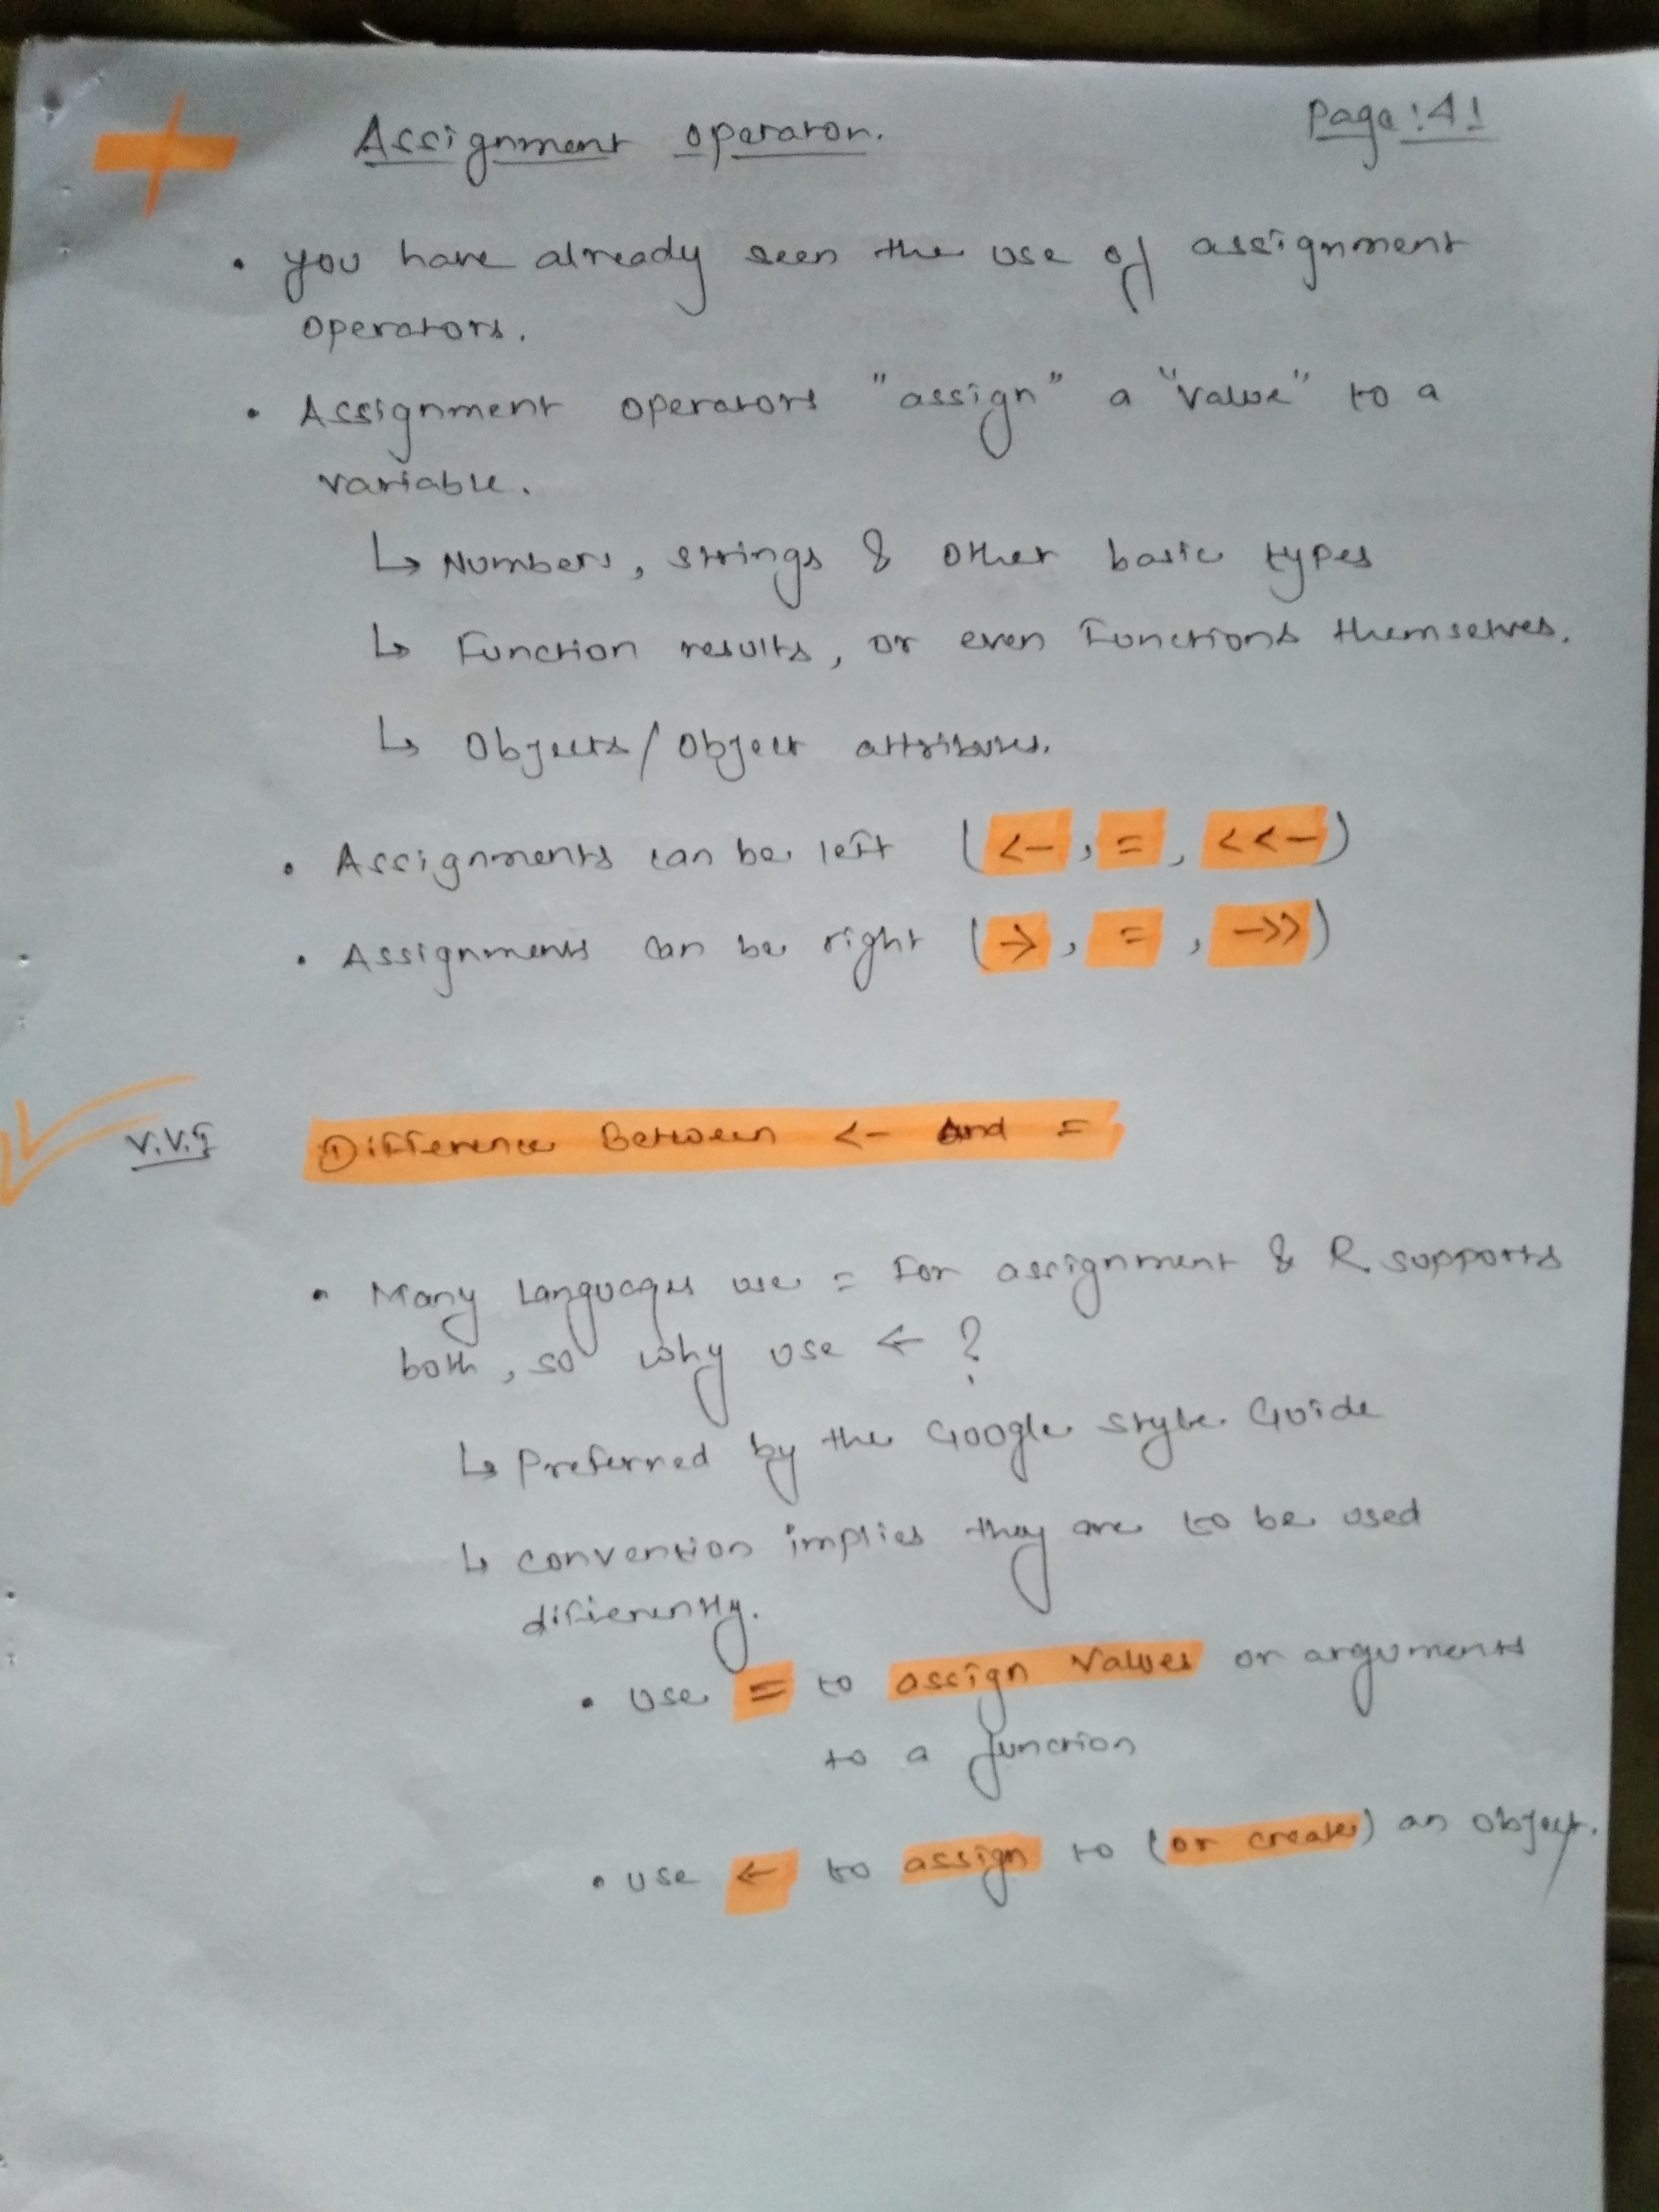 Assignment operator.
Page: 41
• you have already seen the use of assignment
operators.
• Assignment operators "assign" a "value" to a
variable.
↳ Numbers, strings & other basic types
↳ Function results, or even Functions themselves.
↳ Objects/Object attributes.
• Assignments can be left (<-, =, <<-)
• Assignments can be right (→, =, ->>)
V.V.I
Difference Between <- And =
• Many languages use = For assignment & R supports
both, so why use ← ?
↳ Preferred by the Google Style Guide
↳ convention implies they are to be used
differently.
• Use = to assign values or arguments
to a function
• use ← to assign to (or create) an object.